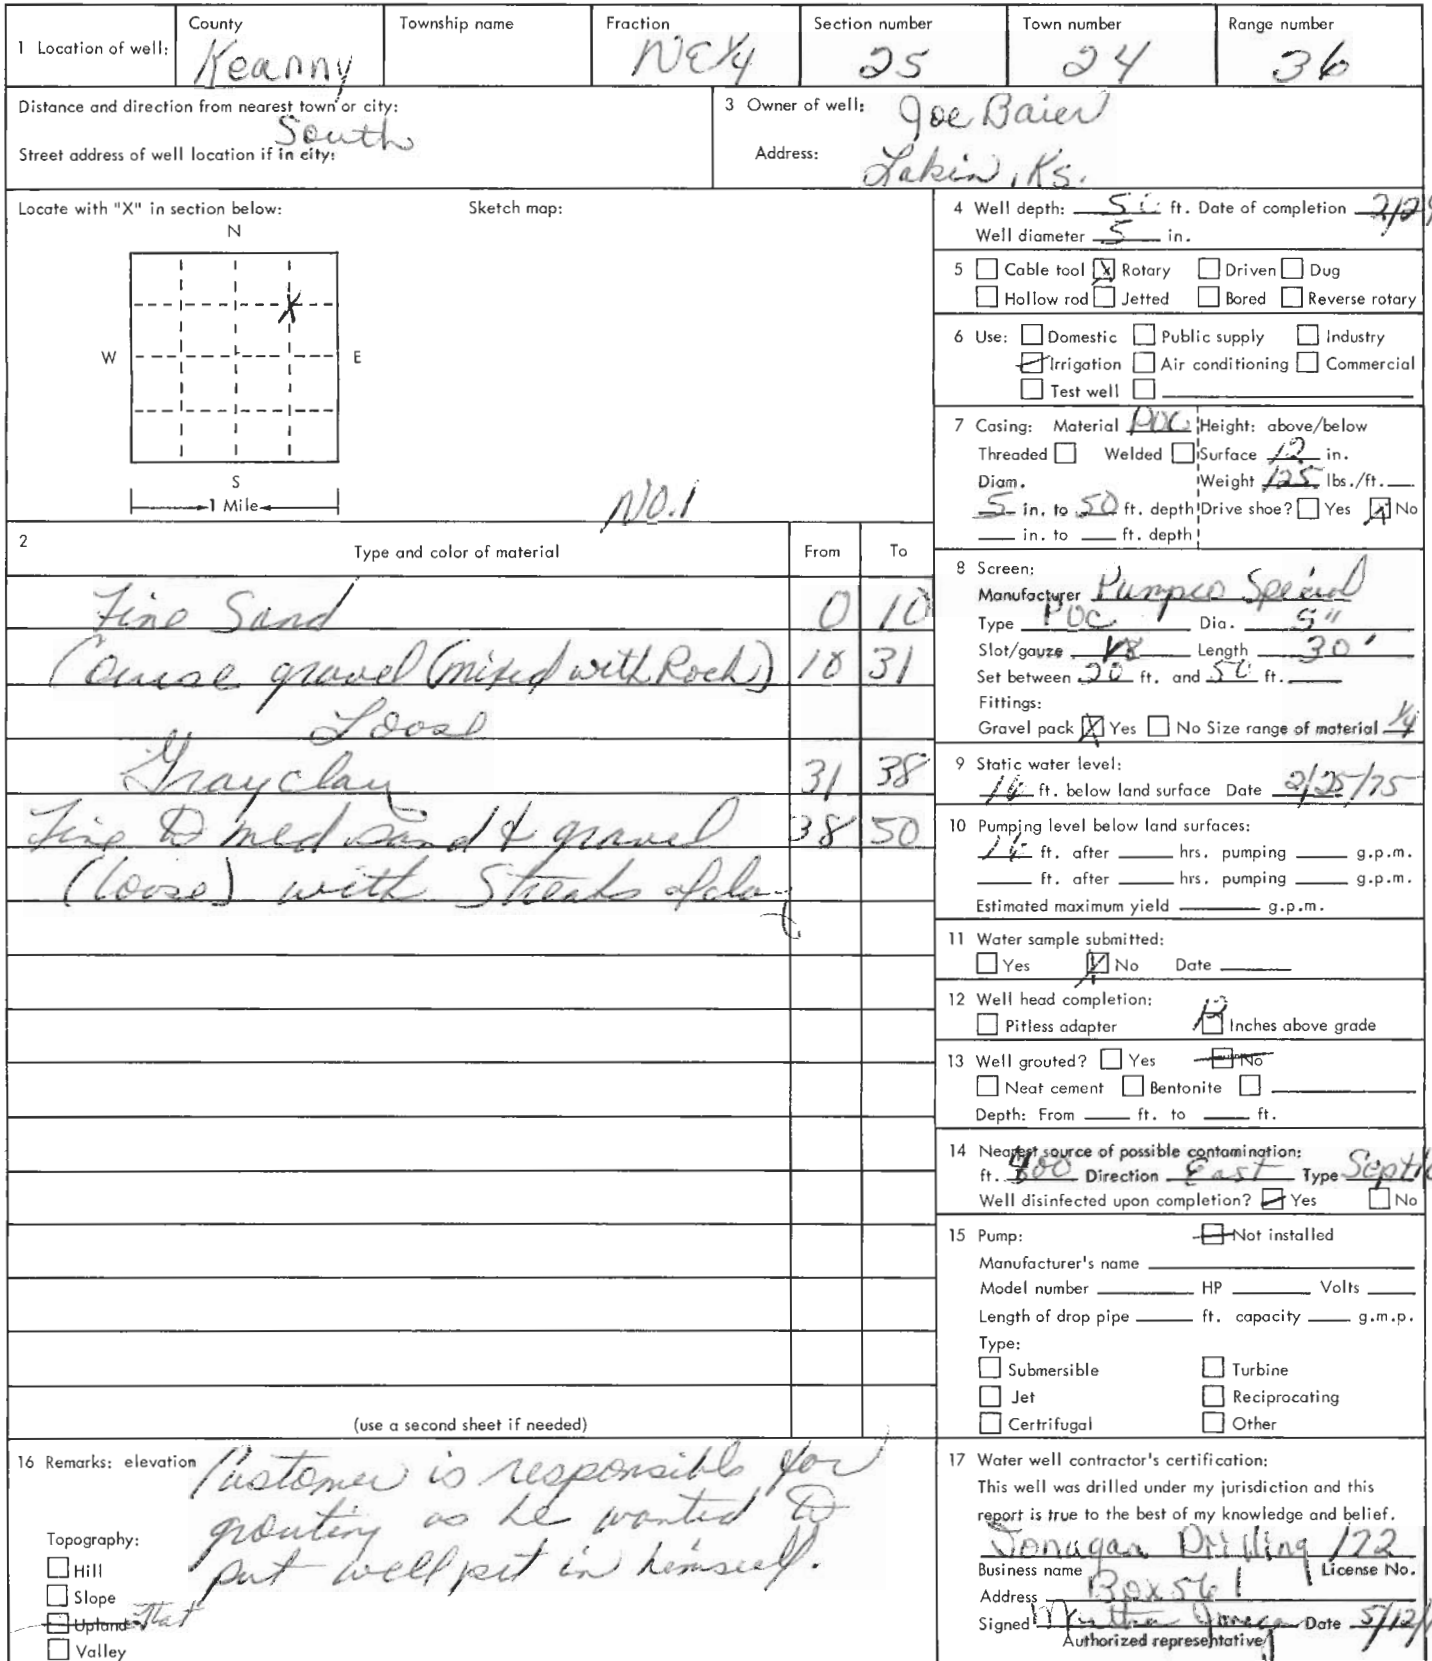 1 Location of well: County Kearny Township name Fraction NE¼ Section number 25 Town number 24 Range number 36
Distance and direction from nearest town or city: South
Street address of well location if in city:
3 Owner of well: Joe Baier
Address: Lakin, Ks.
Locate with "X" in section below: Sketch map:
N
W X E
S
1 Mile
NO.1
2 Type and color of material From To
Fine Sand 0 10
Course gravel (mixed with Rock) 10 31
Loose
Gray clay 31 38
Fine to med sand & gravel 38 50
(loose) with Streaks of clay
(use a second sheet if needed)
4 Well depth: 50 ft. Date of completion
Well diameter 5 in.
5 Cable tool X Rotary Driven Dug
Hollow rod Jetted Bored Reverse rotary
6 Use: Domestic Public supply Industry
Irrigation Air conditioning Commercial
Test well
7 Casing: Material PVC Height: above/below
Threaded Welded Surface 12 in.
Diam. Weight 125 lbs./ft.
5 in. to 50 ft. depth Drive shoe? Yes X No
in. to ft. depth
8 Screen:
Manufacturer Pumpco Special
Type PVC Dia. 5"
Slot/gauze 1/8 Length 30'
Set between 20 ft. and 50 ft.
Fittings:
Gravel pack X Yes No Size range of material 1/4
9 Static water level:
ft. below land surface Date 2/25/75
10 Pumping level below land surfaces:
ft. after hrs. pumping g.p.m.
ft. after hrs. pumping g.p.m.
Estimated maximum yield g.p.m.
11 Water sample submitted:
Yes X No Date
12 Well head completion:
Pitless adapter 12 Inches above grade
13 Well grouted? Yes No
Neat cement Bentonite
Depth: From ft. to ft.
14 Nearest source of possible contamination:
ft. Direction East Type Septic
Well disinfected upon completion? Yes No
15 Pump: Not installed
Manufacturer's name
Model number HP Volts
Length of drop pipe ft. capacity g.m.p.
Type:
Submersible Turbine
Jet Reciprocating
Certrifugal Other
16 Remarks: elevation Customer is responsible for
grouting as he wanted to
put well pit in himself.
Topography:
Hill
Slope
Upland flat
Valley
17 Water well contractor's certification:
This well was drilled under my jurisdiction and this
report is true to the best of my knowledge and belief.
Drilling 172
Business name License No.
Address Box 561
Signed Date 5/12/
Authorized representative